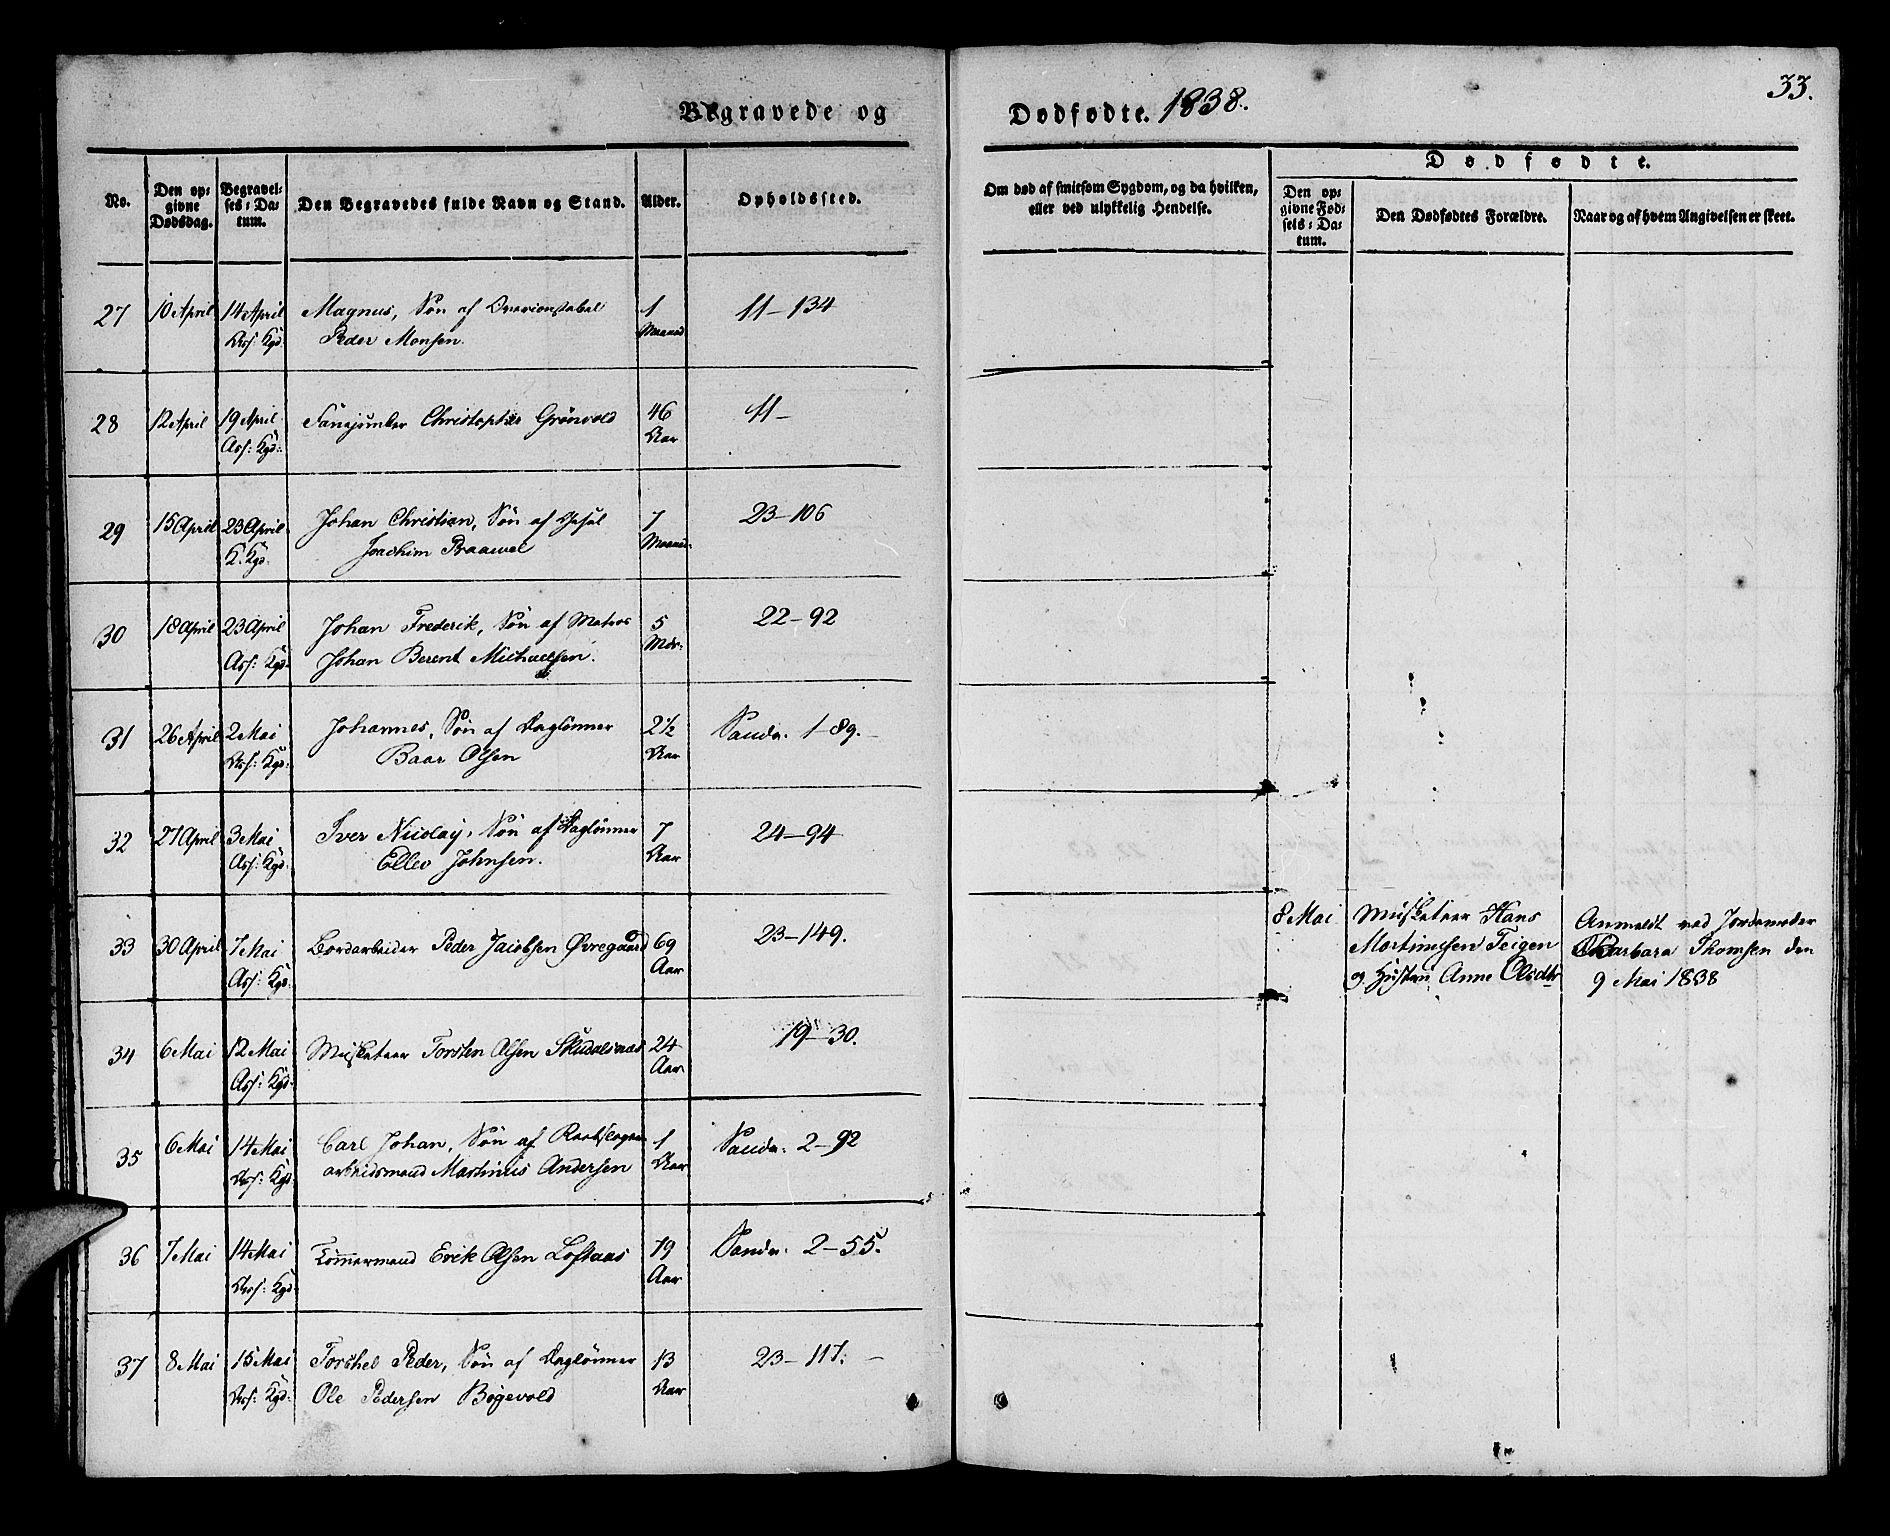 Begravede og
Dødfødte. 1838.
33.
No.
Den opgivne Dødsdag.
Begravelses-Datum.
Den Begravedes fulde Navn og Stand.
Alder.
Opholdssted.
Om død af smitsom Sygdom, og da hvilken, eller ved ulykkelig Hendelse.
Dødfødte.
Den opgivne Fødsels-Datum.
Den Dødfødtes Forældre.
Naar og af hvem Angivelsen er skeet.
27 10 April 14 April Magnus, Søn af 1 11-134
Ass: Kgd: Peder Monsen. Maaned
28 12 April 19 April Christopher Grönvold 46 11-
Ass: Kgd: Aar
29 15 April 23 April Johan Christian, Søn af 7 23-106
K. Kgd. Joachim Praawel Maaned
30 18 April 23 April Johan Frederik, Søn af Matros 5 22-92
Ass: Kgd: Johan Berent Michaelsen. Mdr:
31 26 April 2 Mai Johannes, Søn af Daglönner 2½ Sandv: 1-89.
Ass: Kgd: Baar Olsen Aar
32 27 April 3 Mai Iver Nicolay, Søn af Daglönner 7 24-94
Ass: Kgd: Ellev Johnsen. Aar
33 30 April 7 Mai Bordarbeider Peder Jacobsen Øvregaard 69 23-149.
Ass: Kgd: Aar
8 Mai Musketeer Hans
Mortinsen Teigen
og Hustru Anne Olsdtr
Anmeldt ved Jordemoder
Barbara Thomsen den
9 Mai 1838
34 6 Mai 12 Mai Musketeer Torsten Olsen Skudalsnaas 24 19-30.
Ass: Kgd: Aar
35 6 Mai 14 Mai Carl Johan, Søn af 1 Sandv: 2-92
Ass: Kgd arbeidsmand Martinus Andersen Aar
36 7 Mai 14 Mai Tömmermand Erik Olsen Loftaas 79 Sandv: 2-55.
Ass: Kgd: Aar
37 8 Mai 15 Mai Torkel Peder, Søn af Daglönner 13 23-117.
Ass: Kgd: Ole Pedersen Bøgevold Aar